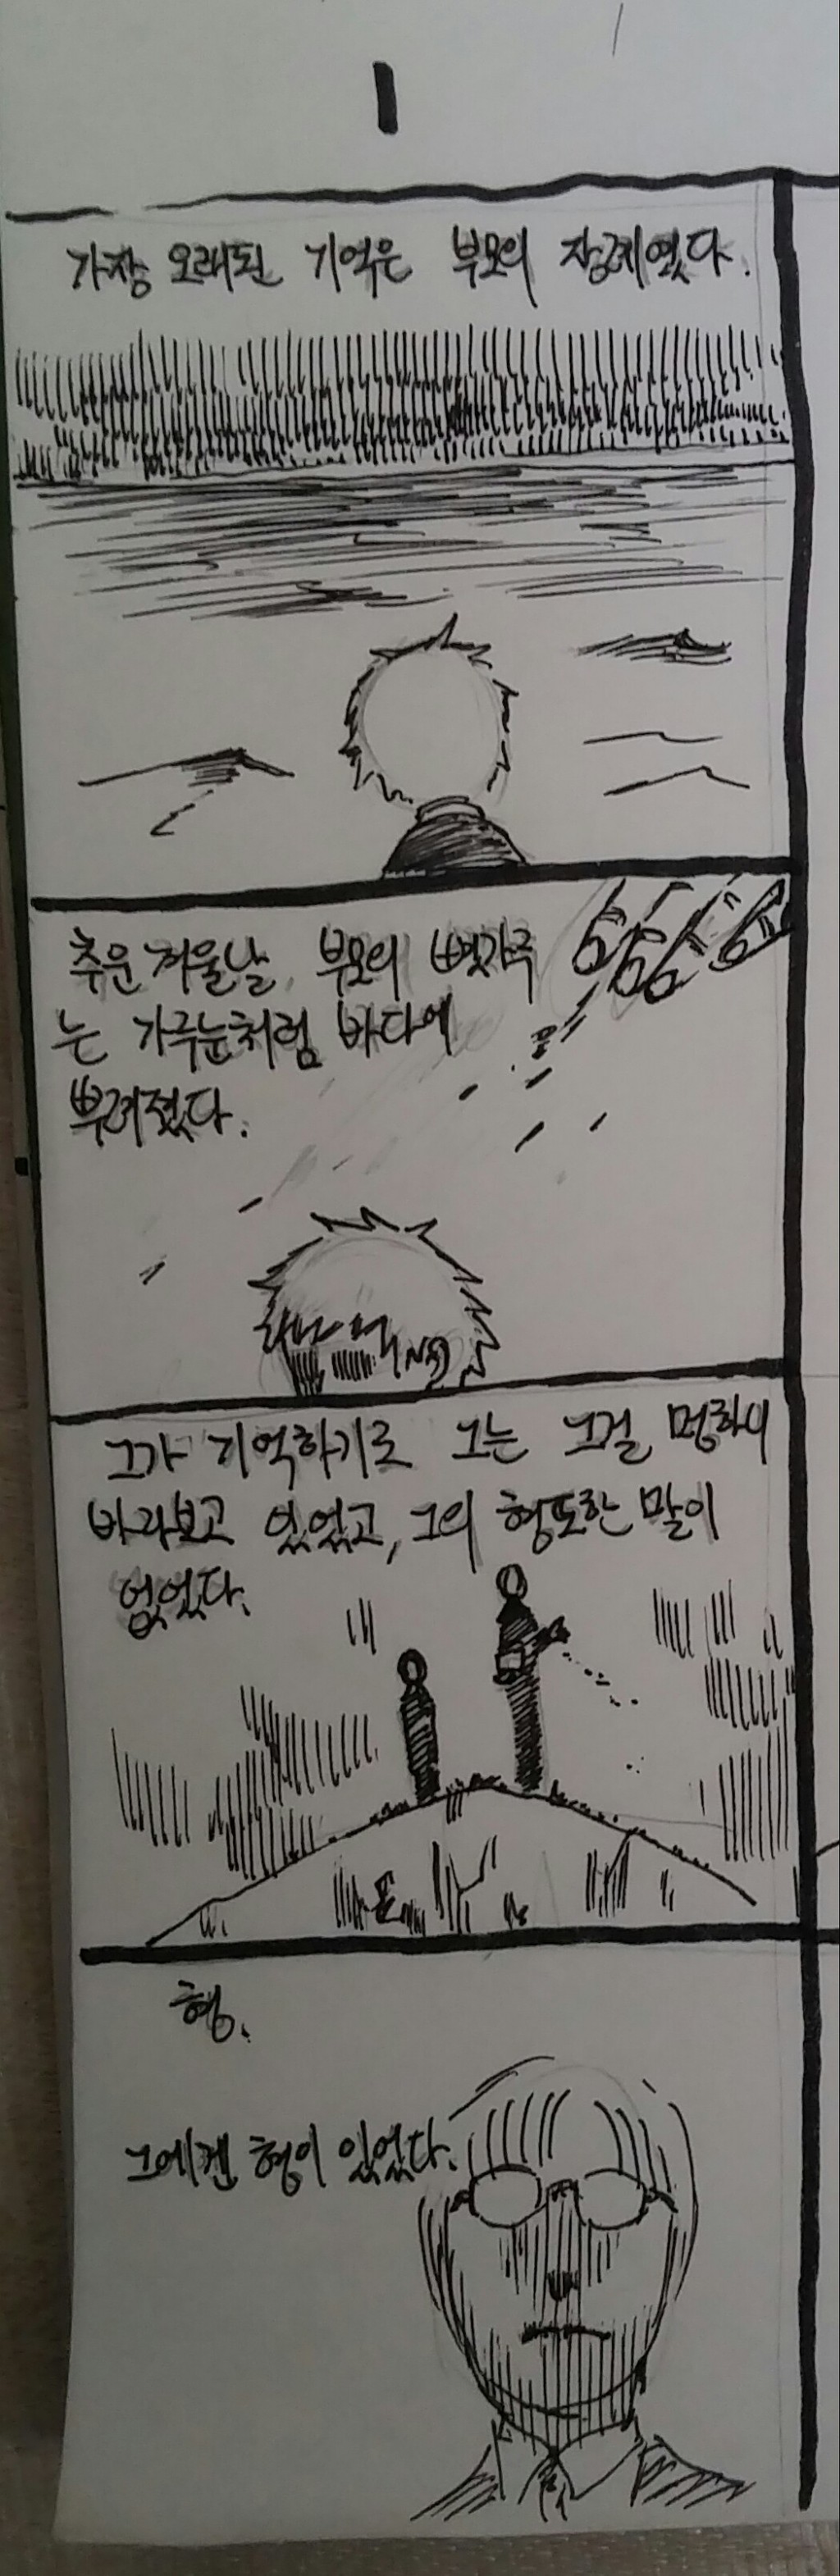 1
가장 오래된 기억은 부모의 장례였다.
추운 겨울날, 부모의 뼛가루
는 가루눈처럼 바다에
뿌려졌다.
그가 기억하기로 그는 그걸 멍하니
바라보고 있었고, 그의 형또한 말이
없었다.
형.
그에겐 형이 있었다.